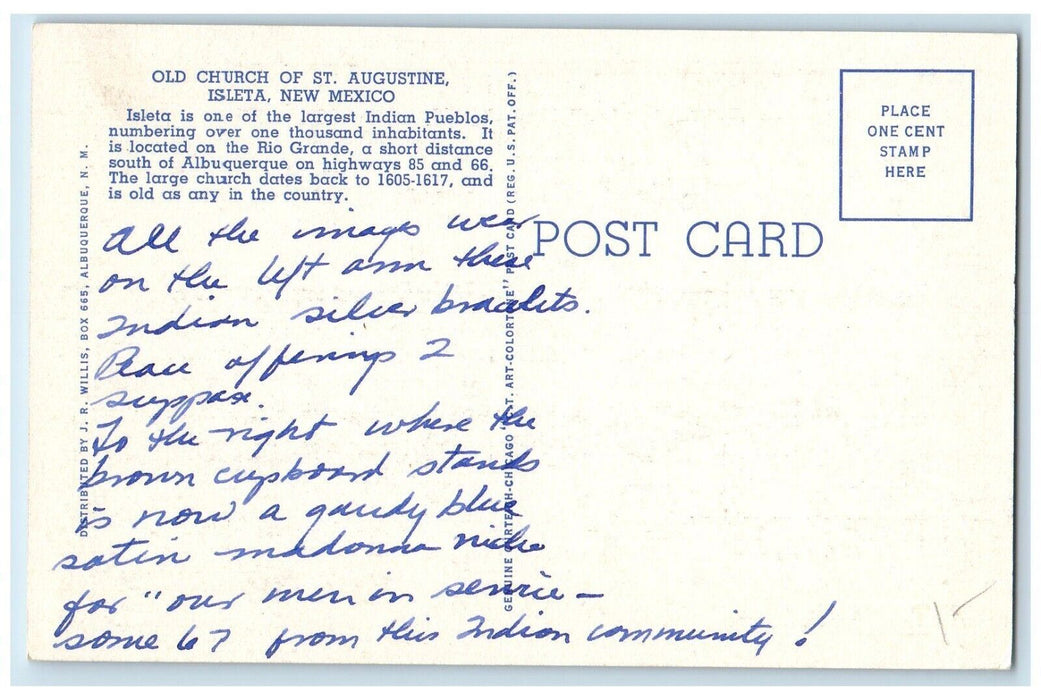 OLD CHURCH OF ST. AUGUSTINE,
ISLETA, NEW MEXICO
Isleta is one of the largest Indian Pueblos,
numbering over one thousand inhabitants. It
is located on the Rio Grande, a short distance
south of Albuquerque on highways 85 and 66.
The large church dates back to 1605-1617, and
is old as any in the country.
All the images wear
on the left arm these
Indian silver bracelets.
Peace offerings I
suppose.
To the right where the
brown cupboard stands
is now a gaudy blue
satin madonna niche
for "our men in service —
some 67 from this Indian community!
DISTRIBUTED BY J. R. WILLIS, BOX 665, ALBUQUERQUE, N. M.
GENUINE CURTEICH-CHICAGO "C.T. ART-COLORTONE" POST CARD (REG. U. S. PAT. OFF.)
POST CARD
PLACE
ONE CENT
STAMP
HERE